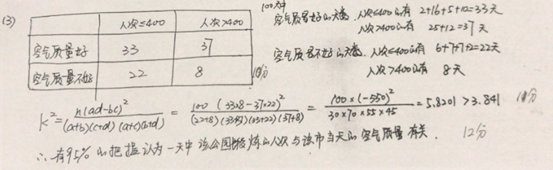 (3)
人次≤400 人次>400
空气质量好 33 37
空气质量不好 22 8
10分
100天中
空气质量好的天数 人次≤400有 2+16+5+10=33天
人次>400有 25+12=37天
空气质量不好的天数 人次≤400有 6+7+7+2=22天
人次>400有 8天
K²= n(ad-bc)² / (a+b)(c+d)(a+c)(b+d) = 100(33×8-37×22)² / (22+8)(33+37)(33+22)(37+8) = 100×(-550)² / 30×70×55×45 = 5.8201 > 3.841
∴有95%的把握认为一天中该公园锻炼的人次与该市当天的空气质量有关. 12分